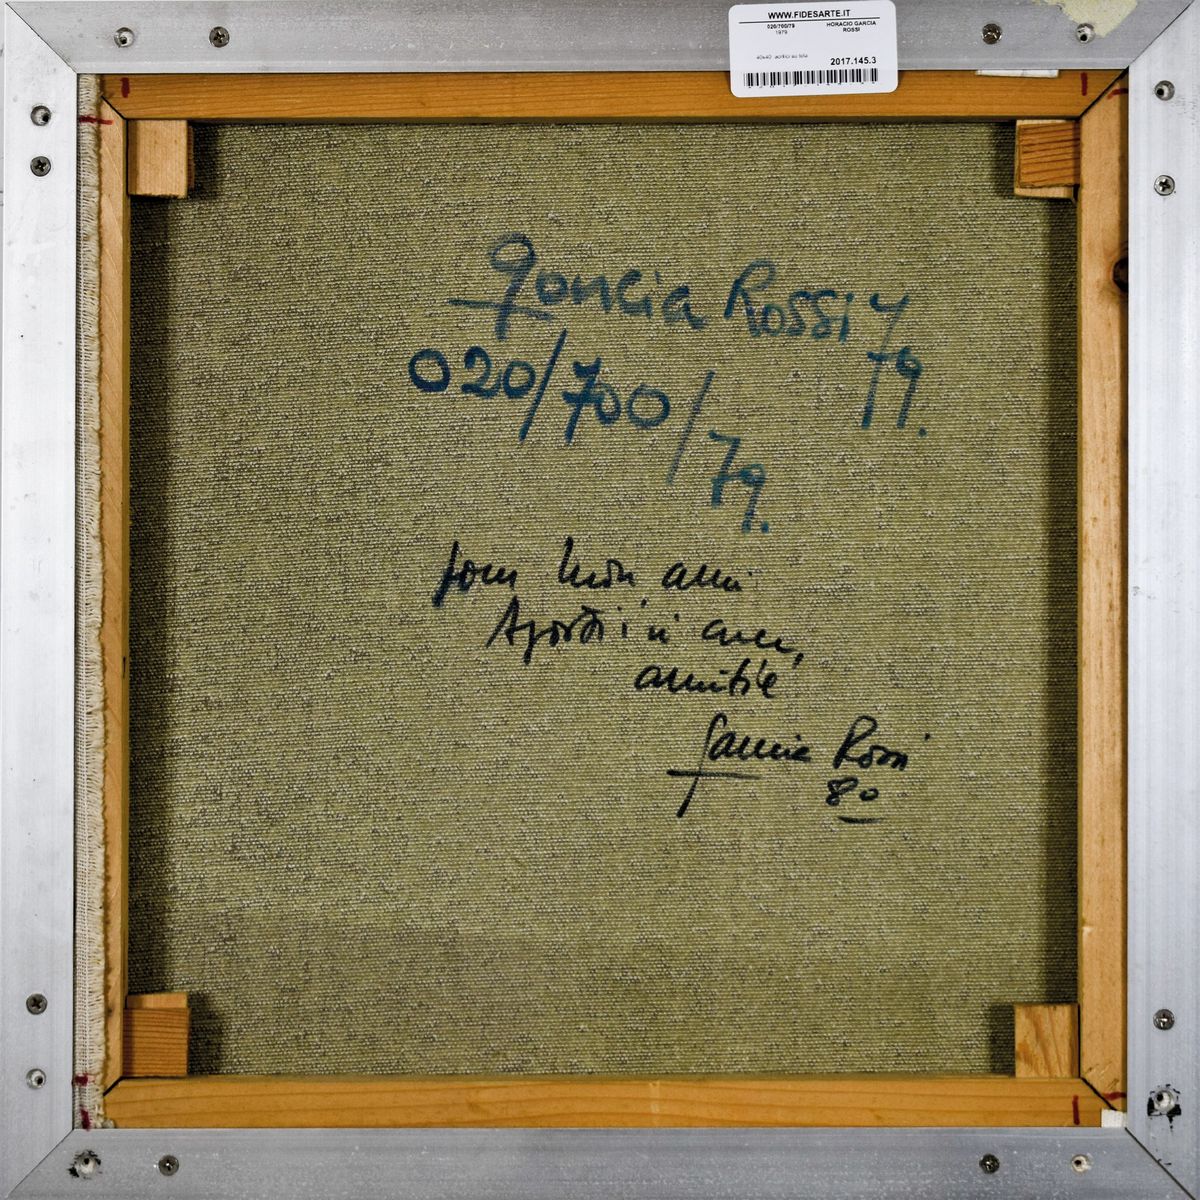 WWW.FIDESARTE.IT
020/700/79 HORACIO GARCIA
1979 ROSSI
40x40 acrilici su tela 2017.145.3
Garcia Rossi
79.
020/700/79.
pour mon ami
avec,
amitié
Garcia Rossi
80